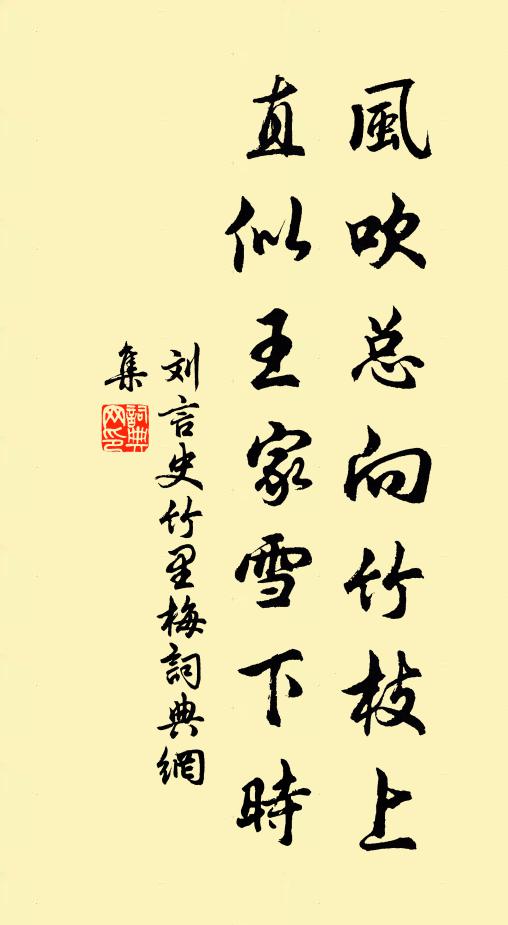 風吹总向竹枝上
直似王家雪下時
刘言史竹里梅詞典網
集
詞典網印